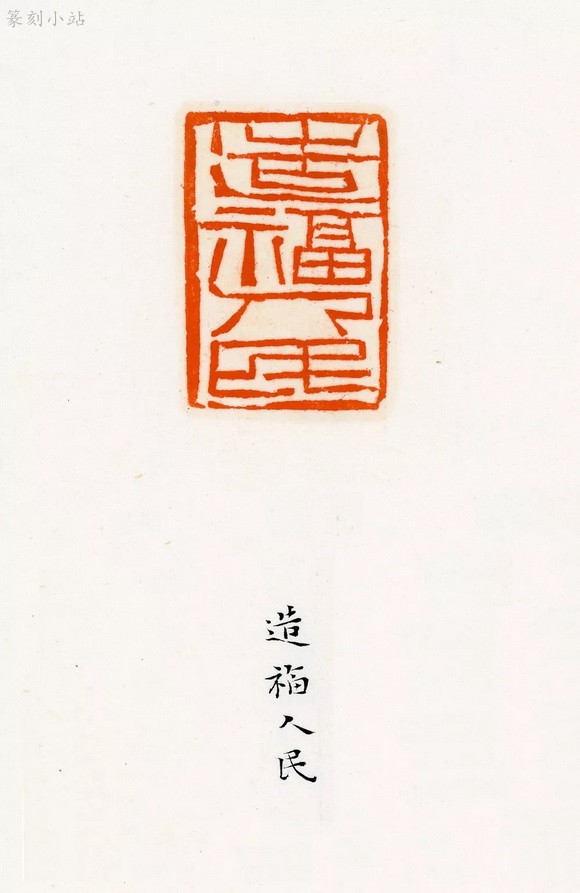 篆刻小站
造福人民
造福人民